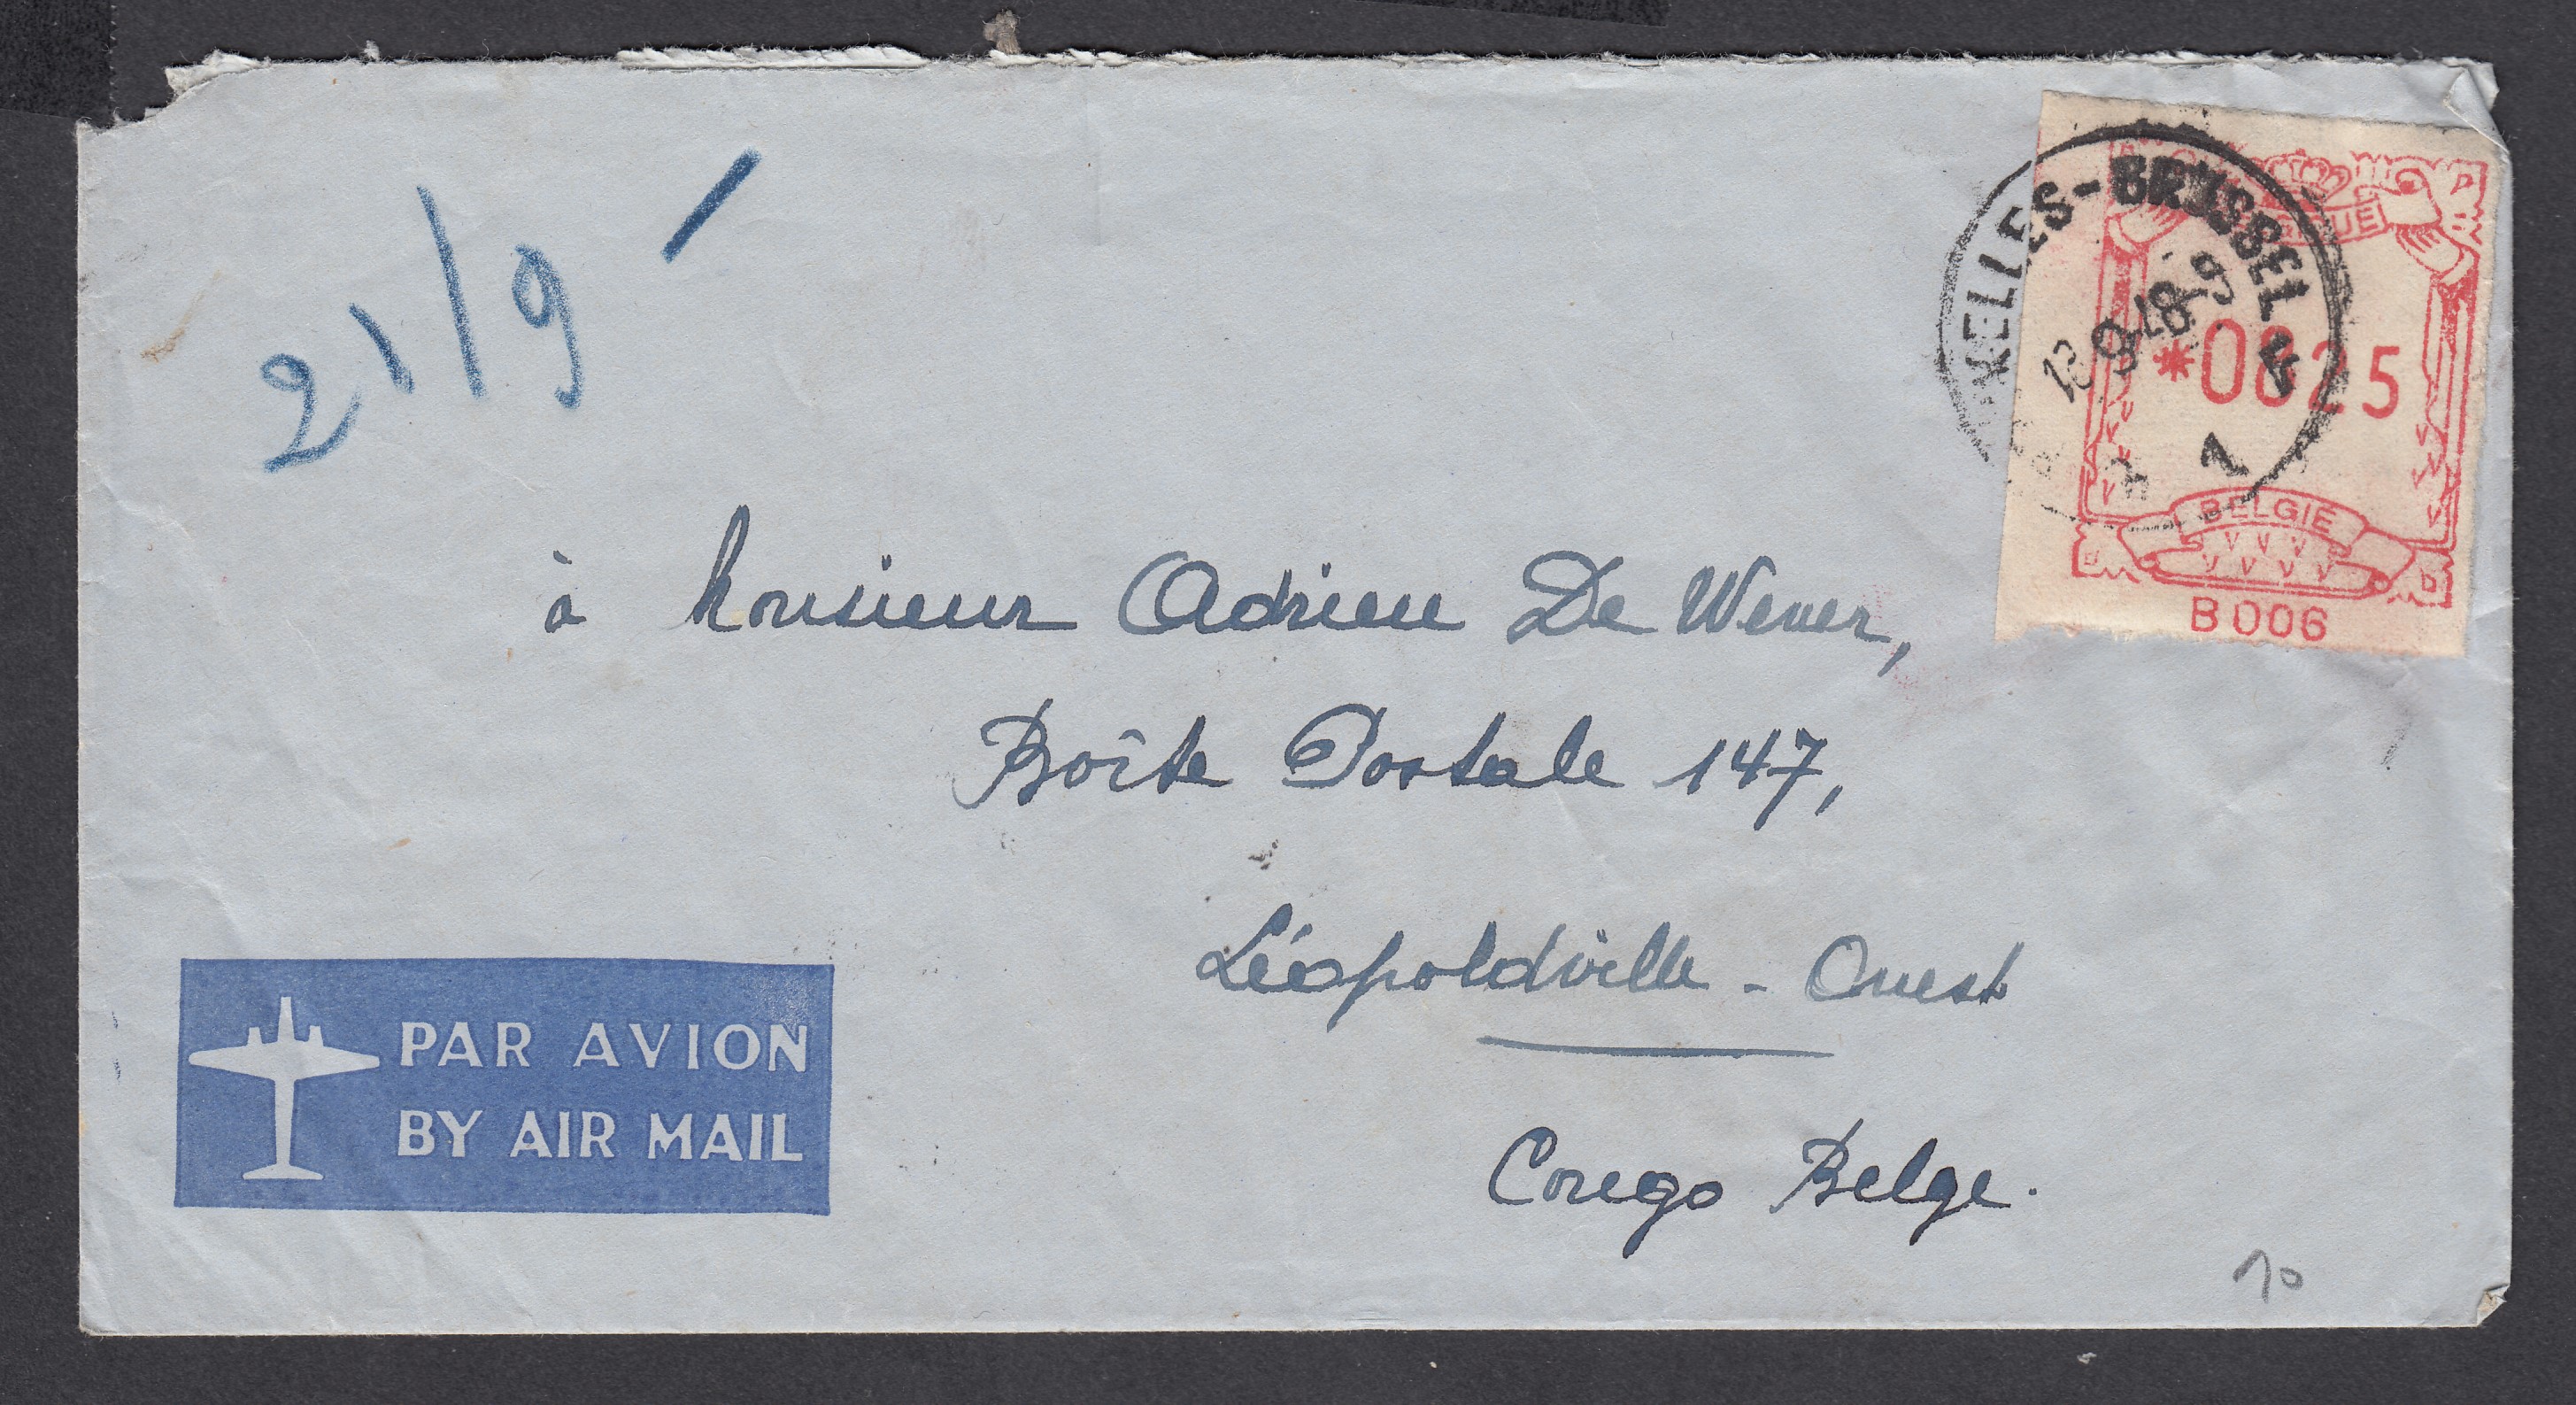 21/9 -
BRUXELLES - BRUSSEL
*0825
1
BELGIE
B006
à Monsieur Adrien De Wever,
Boîte Postale 147,
Léopoldville - Ouest
Congo Belge.
PAR AVION
BY AIR MAIL
10